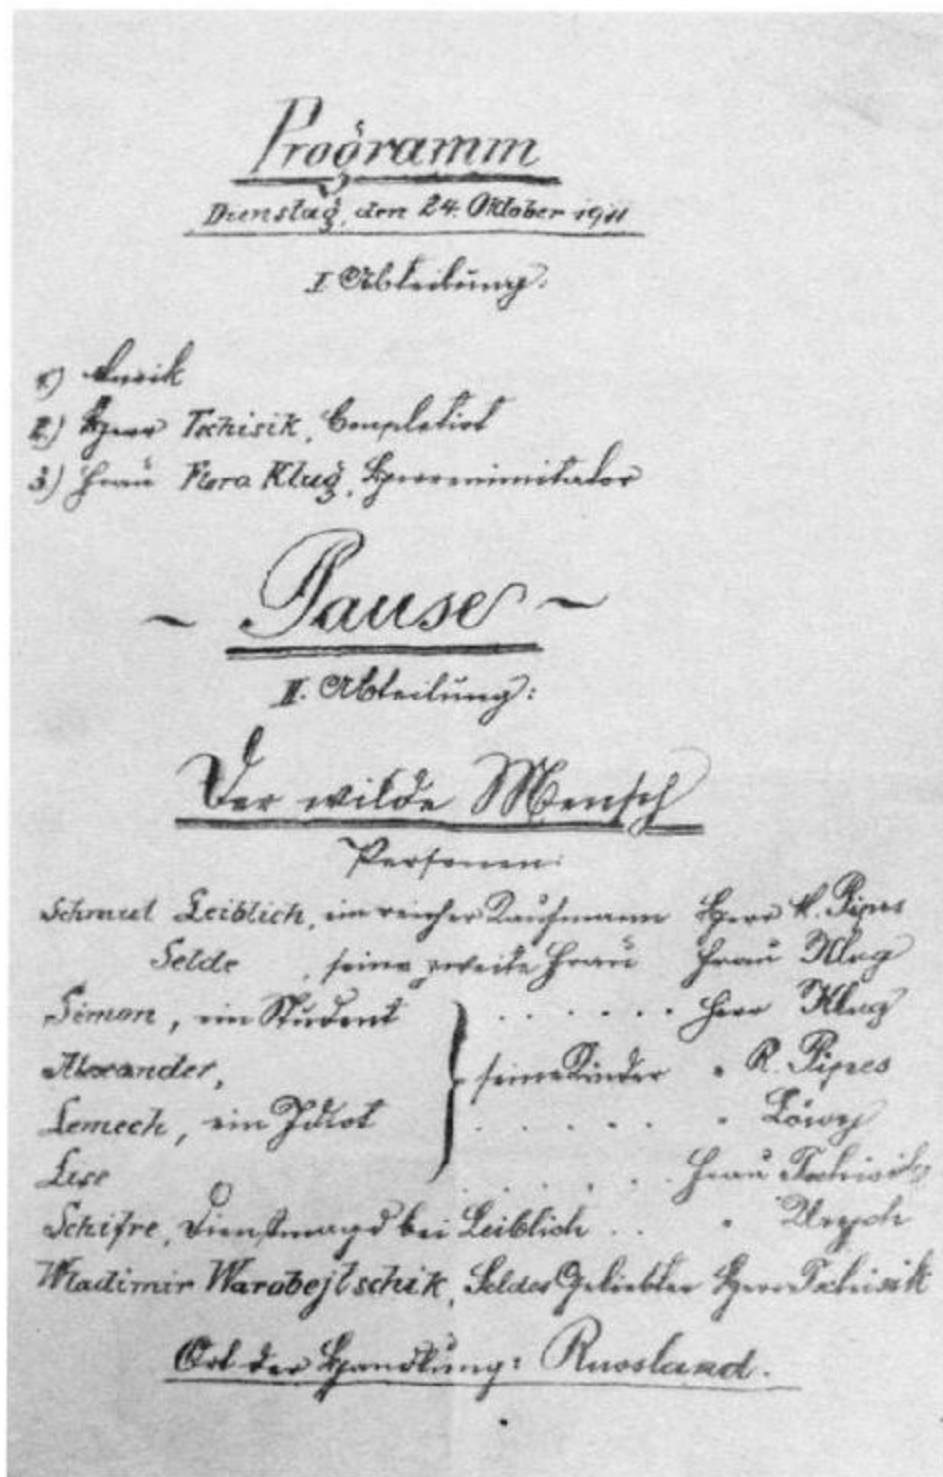 Programm
Dienstag, den 24. Oktober 1911
I Abteilung:
1.) Musik
2.) Herr Tschisik, Coupletist
3.) Frau Flora Klug, Herrenimitator
~ Pause ~
II. Abteilung:
Der wilde Mensch
Personen:
Schmul Leiblich, ein reicher Kaufmann Herr R. Pipes
Selde , seine zweite Frau Frau Klug
Simon, ein Student . . . . . . Herr Klug
Alexander, seine Kinder " R. Pipes
Lemech, ein Idiot . . . . . . " Löwy
Lise . . . . . . Frau Tschisik
Schifre, Dienstmagd bei Leiblich . . "
Wladimir Warobejtschik, Seldes Geliebter Herr Tschisik
Ort der Handlung: Russland.